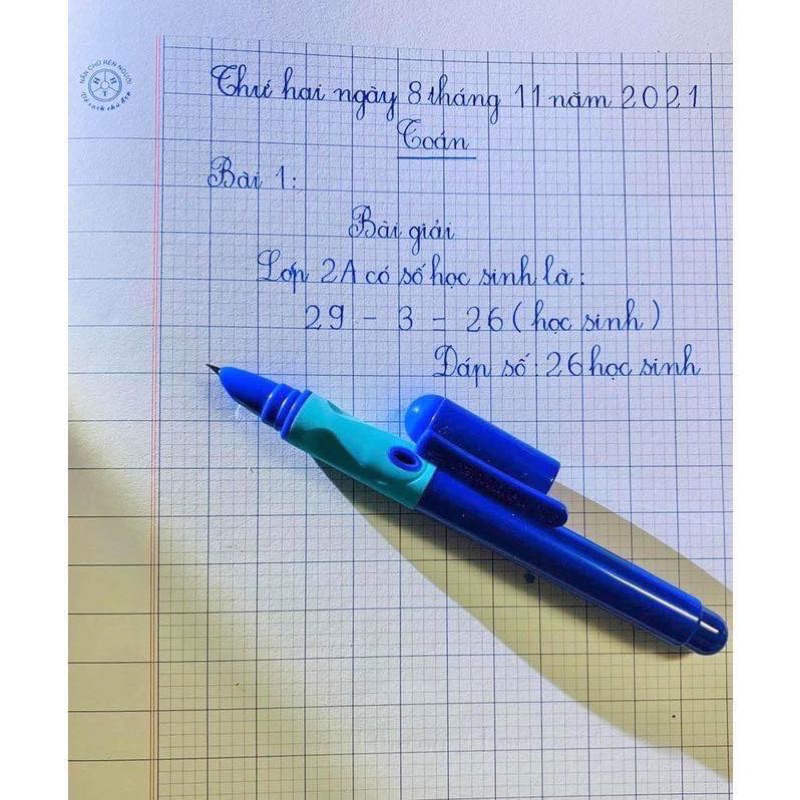 NẮN CHỮ RÈN NGƯỜI
H
H
T
Vở sạch chữ đẹp
Thứ hai ngày 8 tháng 11 năm 2021
Toán
Bài 1:
Bài giải
Lớp 2A có số học sinh là:
29 - 3 = 26 (học sinh)
Đáp số: 26 học sinh